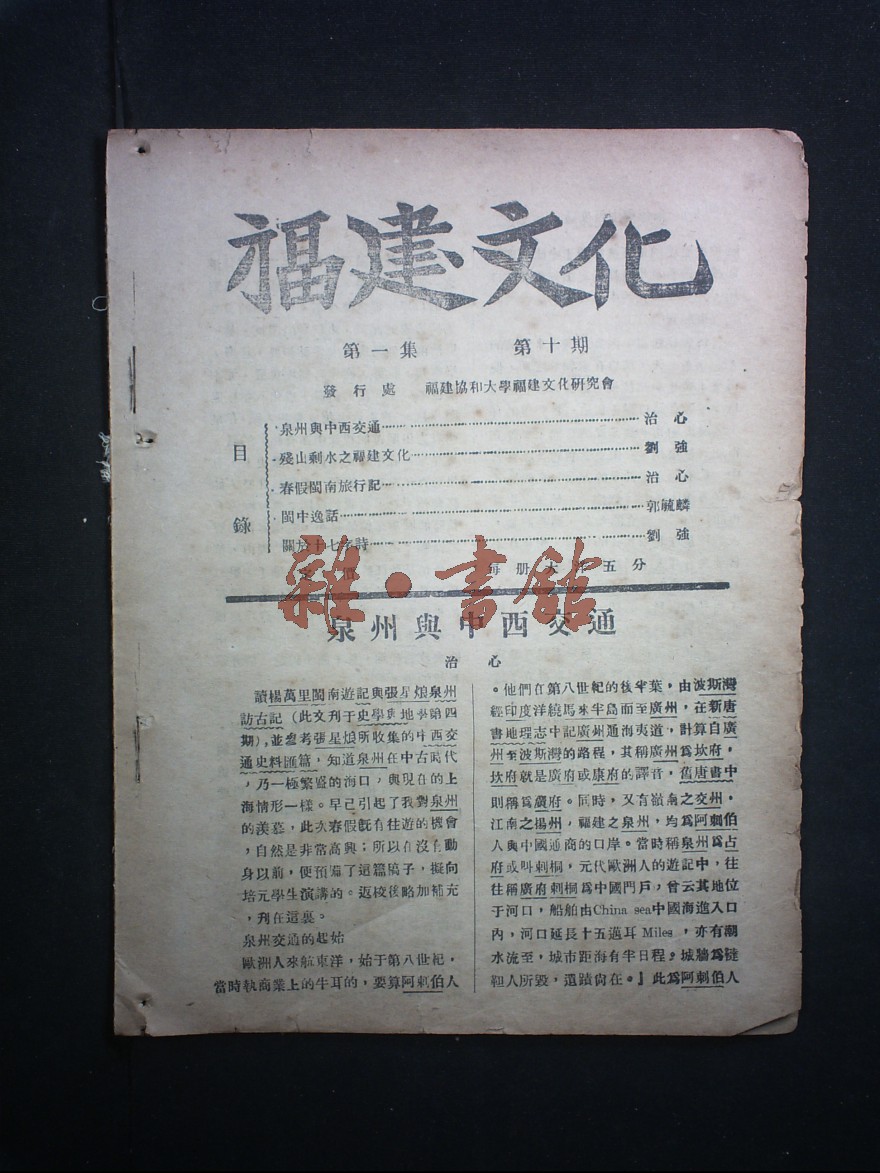 福建文化
第一集 第十期
發行處 福建協和大學福建文化研究會
目錄
泉州與中西交通 治心
殘山剩水之福建文化 劉強
春假閩南旅行記 治心
閩中逸話 郭毓麟
關於十七字詩 劉強
每册大洋五分
雜·書館
泉州與中西交通
治心
讀楊萬里閩南遊記與張星烺泉州
訪古記（此文刊于史學與地學第四
期），並參考張星烺所收集的中西交
通史料匯篇，知道泉州在中古時代
，乃一極繁盛的海口，與現在的上
海情形一樣。早已引起了我對泉州
的羨慕，此次春假既有往遊的機會
，自然是非常高興；所以在沒有動
身以前，便預備了這篇稿子，擬向
培元學生演講的。返校後略加補充
，刋在這裏。
泉州交通的起始
歐洲人來航東洋，始于第八世紀，
當時執商業上的牛耳的，要算阿剌伯人
。他們在第八世紀的後半葉，由波斯灣
經印度洋繞馬來半島而至廣州，在新唐
書地理志中記廣州通海夷道，計算自廣
州至波斯灣的路程，其稱廣州爲坎府，
坎府就是廣府或康府的譯音，舊唐書中
則稱爲廣府。同時，又有嶺南之交州，
江南之揚州，福建之泉州，均爲阿剌伯
人與中國通商的口岸。當時稱泉州爲占
府或叫刺桐，元代歐洲人的遊記中，往
往稱廣府刺桐爲中國門戶，曾云其地位
于河口，船舶由China sea中國海進入口
內，河口延長十五邁耳Miles，亦有潮
水流至，城市距海有半日程，城牆爲韃
靼人所毀，遺蹟尙在。』此爲阿剌伯人